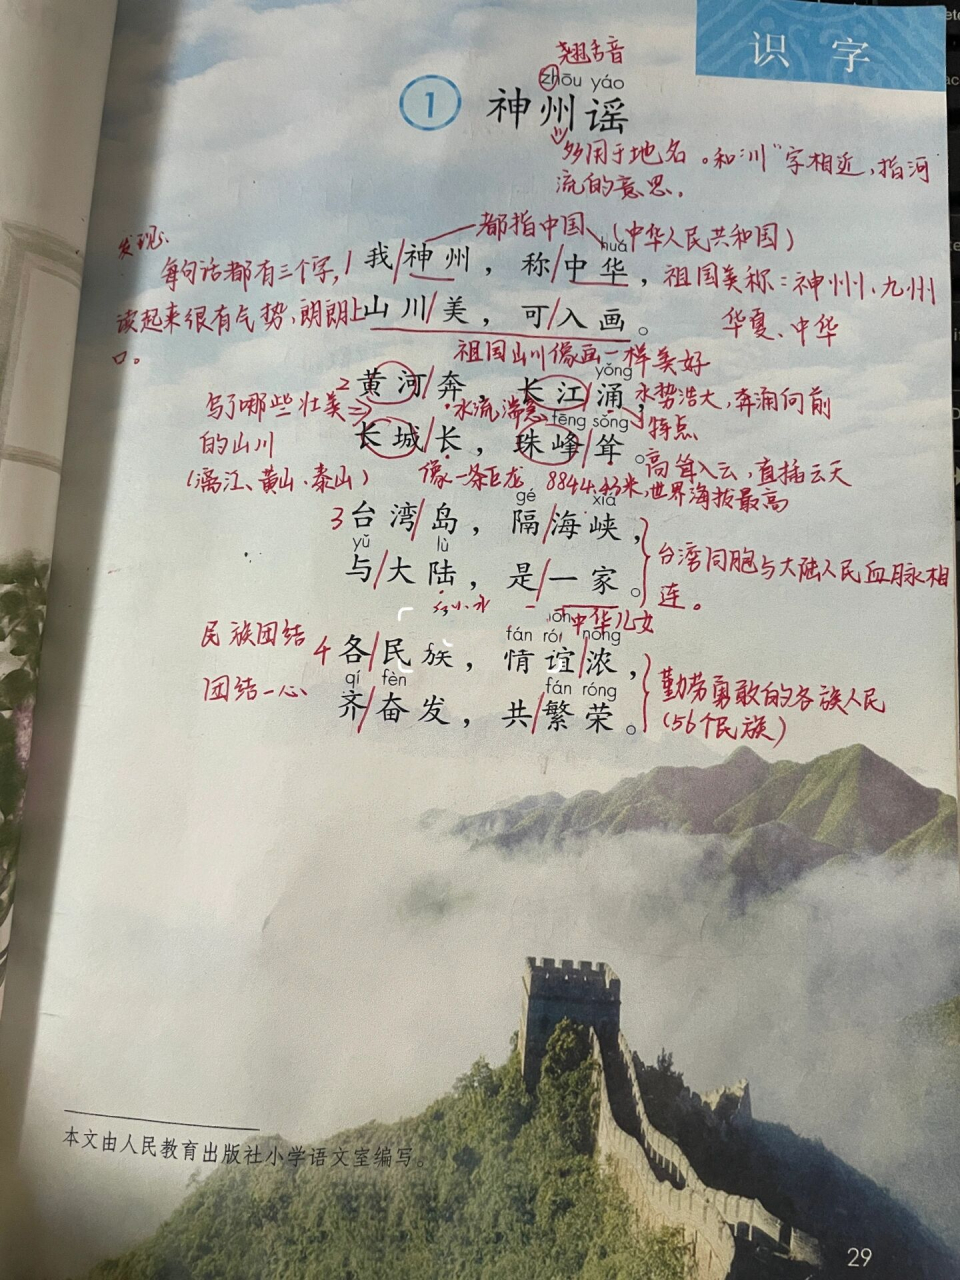 识字
翘舌音
zhōu yáo
1 神州谣
多用于地名。和"川"字相近,指河
流的意思。
发现:
都指中国(中华人民共和国)
huá
每句话都有三个字,
1 我/神州,称/中华,
祖国美称:神州、九州
读起来很有气势,朗朗上
山川/美,可/入画。
华夏、中华
口。
祖国山川像画一样美好
yǒng
写了哪些壮美
2 黄河/奔,长江/涌,
水流湍急
水势浩大,奔涌向前
特点
的山川
fēng sǒng
长城/长,珠峰/耸。
高耸入云,直插云天
(漓江、黄山、泰山)
像一条巨龙
8844.43米,世界海拔最高
gé xiá
3 台湾/岛,隔/海峡,
yǔ lù
与/大陆,是/一家。
台湾同胞与大陆人民血脉相
连。
中华儿女
民族团结
fán nóng
4 各/民族,情谊/浓,
团结一心
qí fèn fán róng
齐/奋发,共/繁荣。
勤劳勇敢的各族人民
(56个民族)
本文由人民教育出版社小学语文室编写。
29